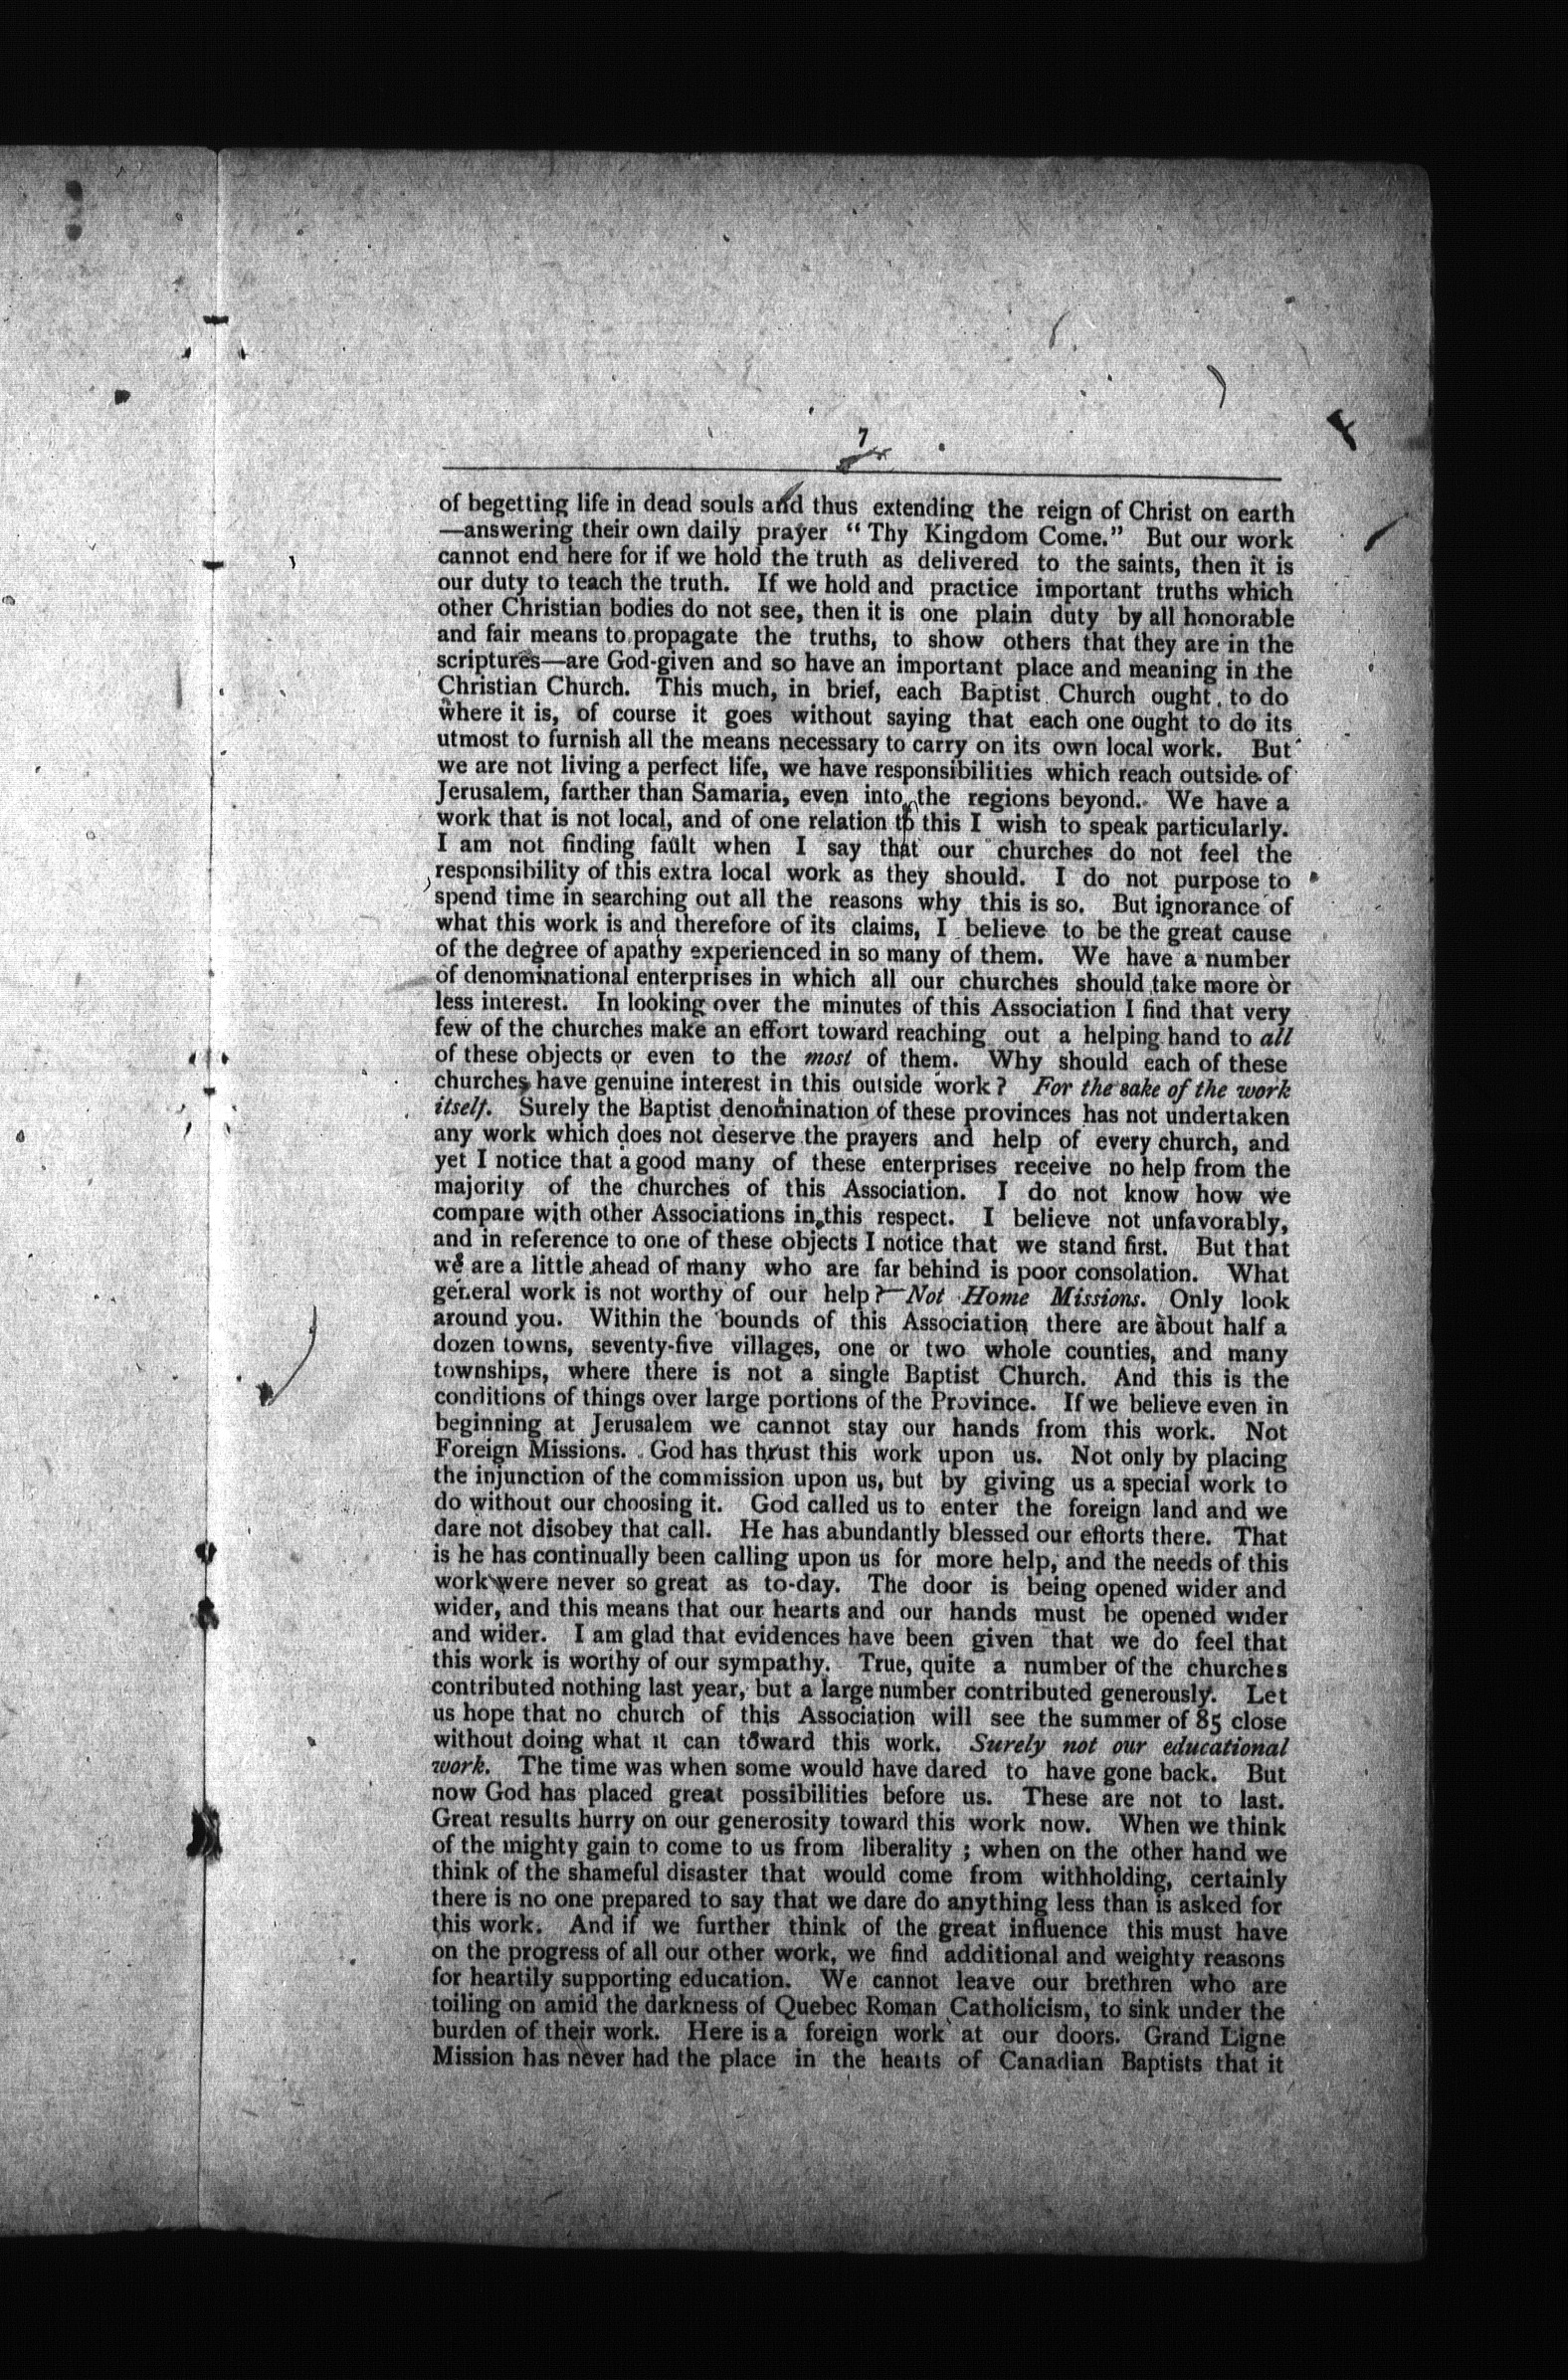 7
of begetting life in dead souls and thus extending the reign of Christ on earth
—answering their own daily prayer "Thy Kingdom Come." But our work
cannot end here for if we hold the truth as delivered to the saints, then it is
our duty to teach the truth. If we hold and practice important truths which
other Christian bodies do not see, then it is one plain duty by all honorable
and fair means to propagate the truths, to show others that they are in the
scriptures—are God-given and so have an important place and meaning in the
Christian Church. This much, in brief, each Baptist Church ought to do
where it is, of course it goes without saying that each one ought to do its
utmost to furnish all the means necessary to carry on its own local work. But
we are not living a perfect life, we have responsibilities which reach outside of
Jerusalem, farther than Samaria, even into the regions beyond. We have a
work that is not local, and of one relation to this I wish to speak particularly.
I am not finding fault when I say that our churches do not feel the
responsibility of this extra local work as they should. I do not purpose to
spend time in searching out all the reasons why this is so. But ignorance of
what this work is and therefore of its claims, I believe to be the great cause
of the degree of apathy experienced in so many of them. We have a number
of denominational enterprises in which all our churches should take more or
less interest. In looking over the minutes of this Association I find that very
few of the churches make an effort toward reaching out a helping hand to all
of these objects or even to the most of them. Why should each of these
churches have genuine interest in this outside work? For the sake of the work
itself. Surely the Baptist denomination of these provinces has not undertaken
any work which does not deserve the prayers and help of every church, and
yet I notice that a good many of these enterprises receive no help from the
majority of the churches of this Association. I do not know how we
compare with other Associations in this respect. I believe not unfavorably,
and in reference to one of these objects I notice that we stand first. But that
we are a little ahead of many who are far behind is poor consolation. What
general work is not worthy of our help?—Not Home Missions. Only look
around you. Within the bounds of this Association there are about half a
dozen towns, seventy-five villages, one or two whole counties, and many
townships, where there is not a single Baptist Church. And this is the
conditions of things over large portions of the Province. If we believe even in
beginning at Jerusalem we cannot stay our hands from this work. Not
Foreign Missions. God has thrust this work upon us. Not only by placing
the injunction of the commission upon us, but by giving us a special work to
do without our choosing it. God called us to enter the foreign land and we
dare not disobey that call. He has abundantly blessed our efforts there. That
is he has continually been calling upon us for more help, and the needs of this
work were never so great as to-day. The door is being opened wider and
wider, and this means that our hearts and our hands must be opened wider
and wider. I am glad that evidences have been given that we do feel that
this work is worthy of our sympathy. True, quite a number of the churches
contributed nothing last year, but a large number contributed generously. Let
us hope that no church of this Association will see the summer of 85 close
without doing what it can toward this work. Surely not our educational
work. The time was when some would have dared to have gone back. But
now God has placed great possibilities before us. These are not to last.
Great results hurry on our generosity toward this work now. When we think
of the mighty gain to come to us from liberality ; when on the other hand we
think of the shameful disaster that would come from withholding, certainly
there is no one prepared to say that we dare do anything less than is asked for
this work. And if we further think of the great influence this must have
on the progress of all our other work, we find additional and weighty reasons
for heartily supporting education. We cannot leave our brethren who are
toiling on amid the darkness of Quebec Roman Catholicism, to sink under the
burden of their work. Here is a foreign work at our doors. Grand Ligne
Mission has never had the place in the hearts of Canadian Baptists that it